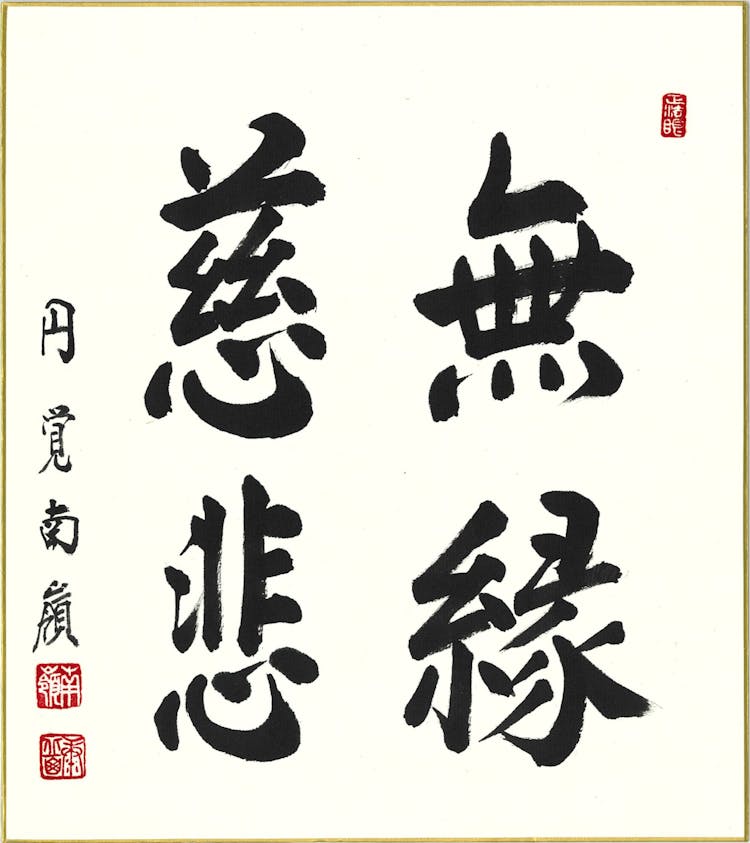 無縁
慈悲
円覚南嶺
南嶺